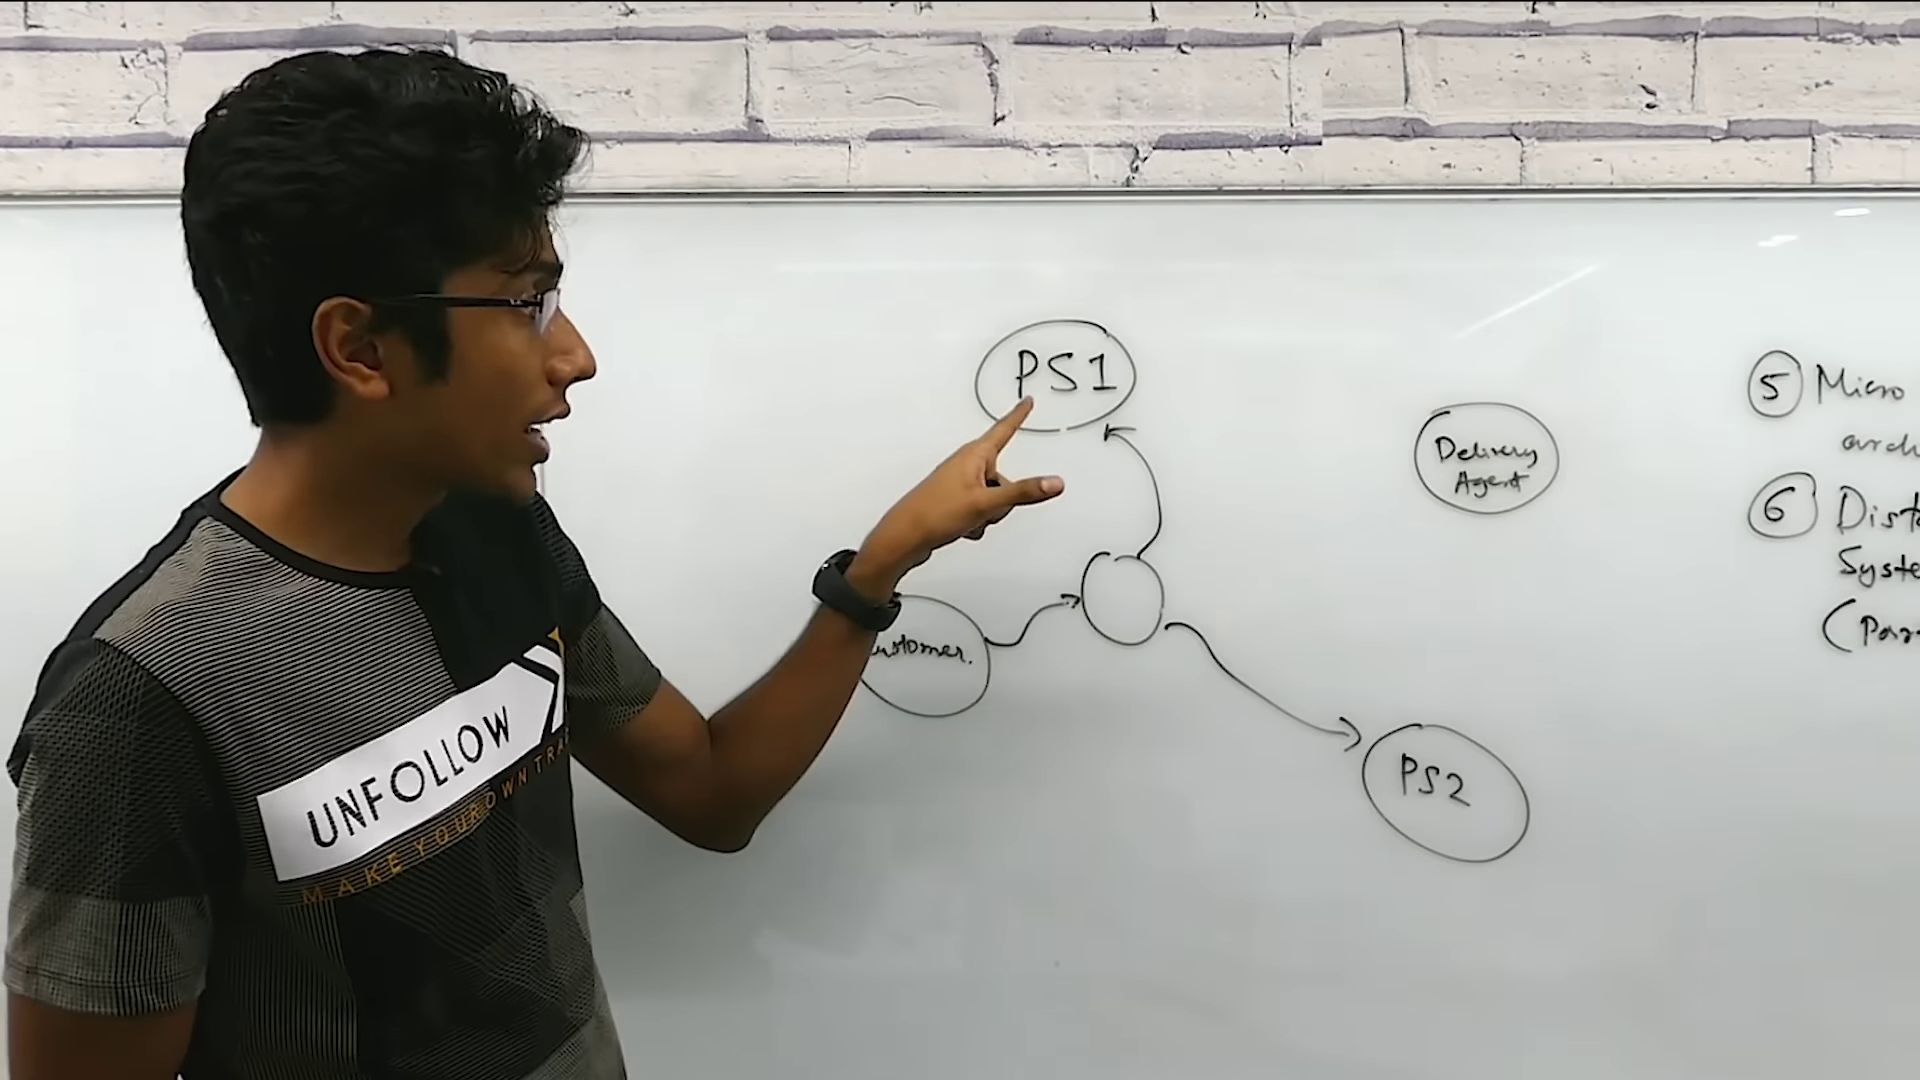 PS1
Delivery
Agent
ustomer.
PS2
5 Micro
arch
6 Dist
Syste
(Par
UNFOLLOW
MAKE YOUR OWN TRA